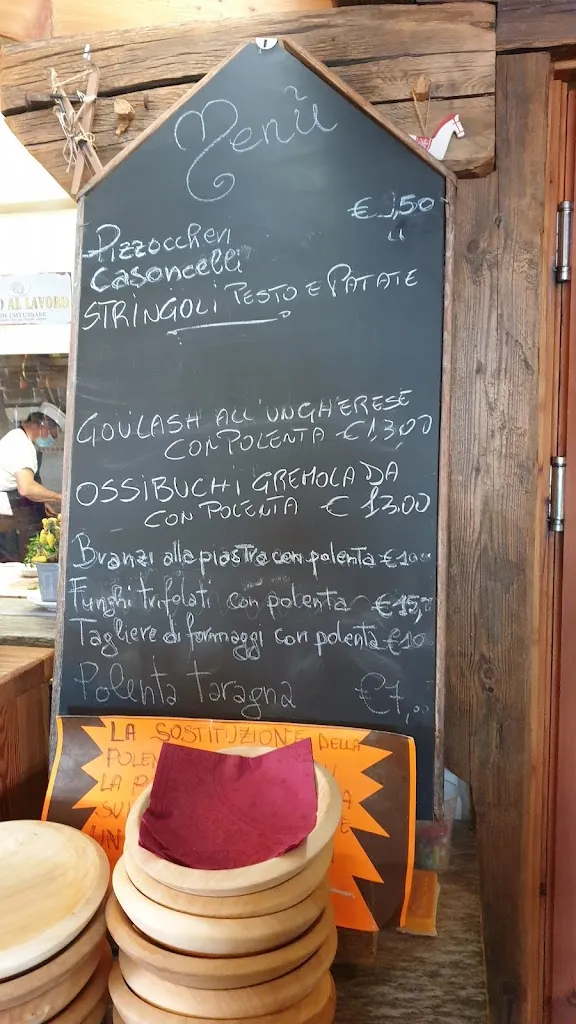 Menù
€ 9,50
Pizzoccheri "
Casoncelli
STRINGOLI PESTO E PATATE
GOULASH ALL'UNGHERESE
CON POLENTA €13,00
OSSIBUCHI GREMOLADA
CON POLENTA € 13.00
Branzi alla piastra con polenta €10
Funghi trifolati con polenta €15,
Tagliere di formaggi con polenta €10
Polenta taragna €7,00
AL LAVORO
LA SOSTITUZIONE DELLA
POLEN
LA P
SU
UN